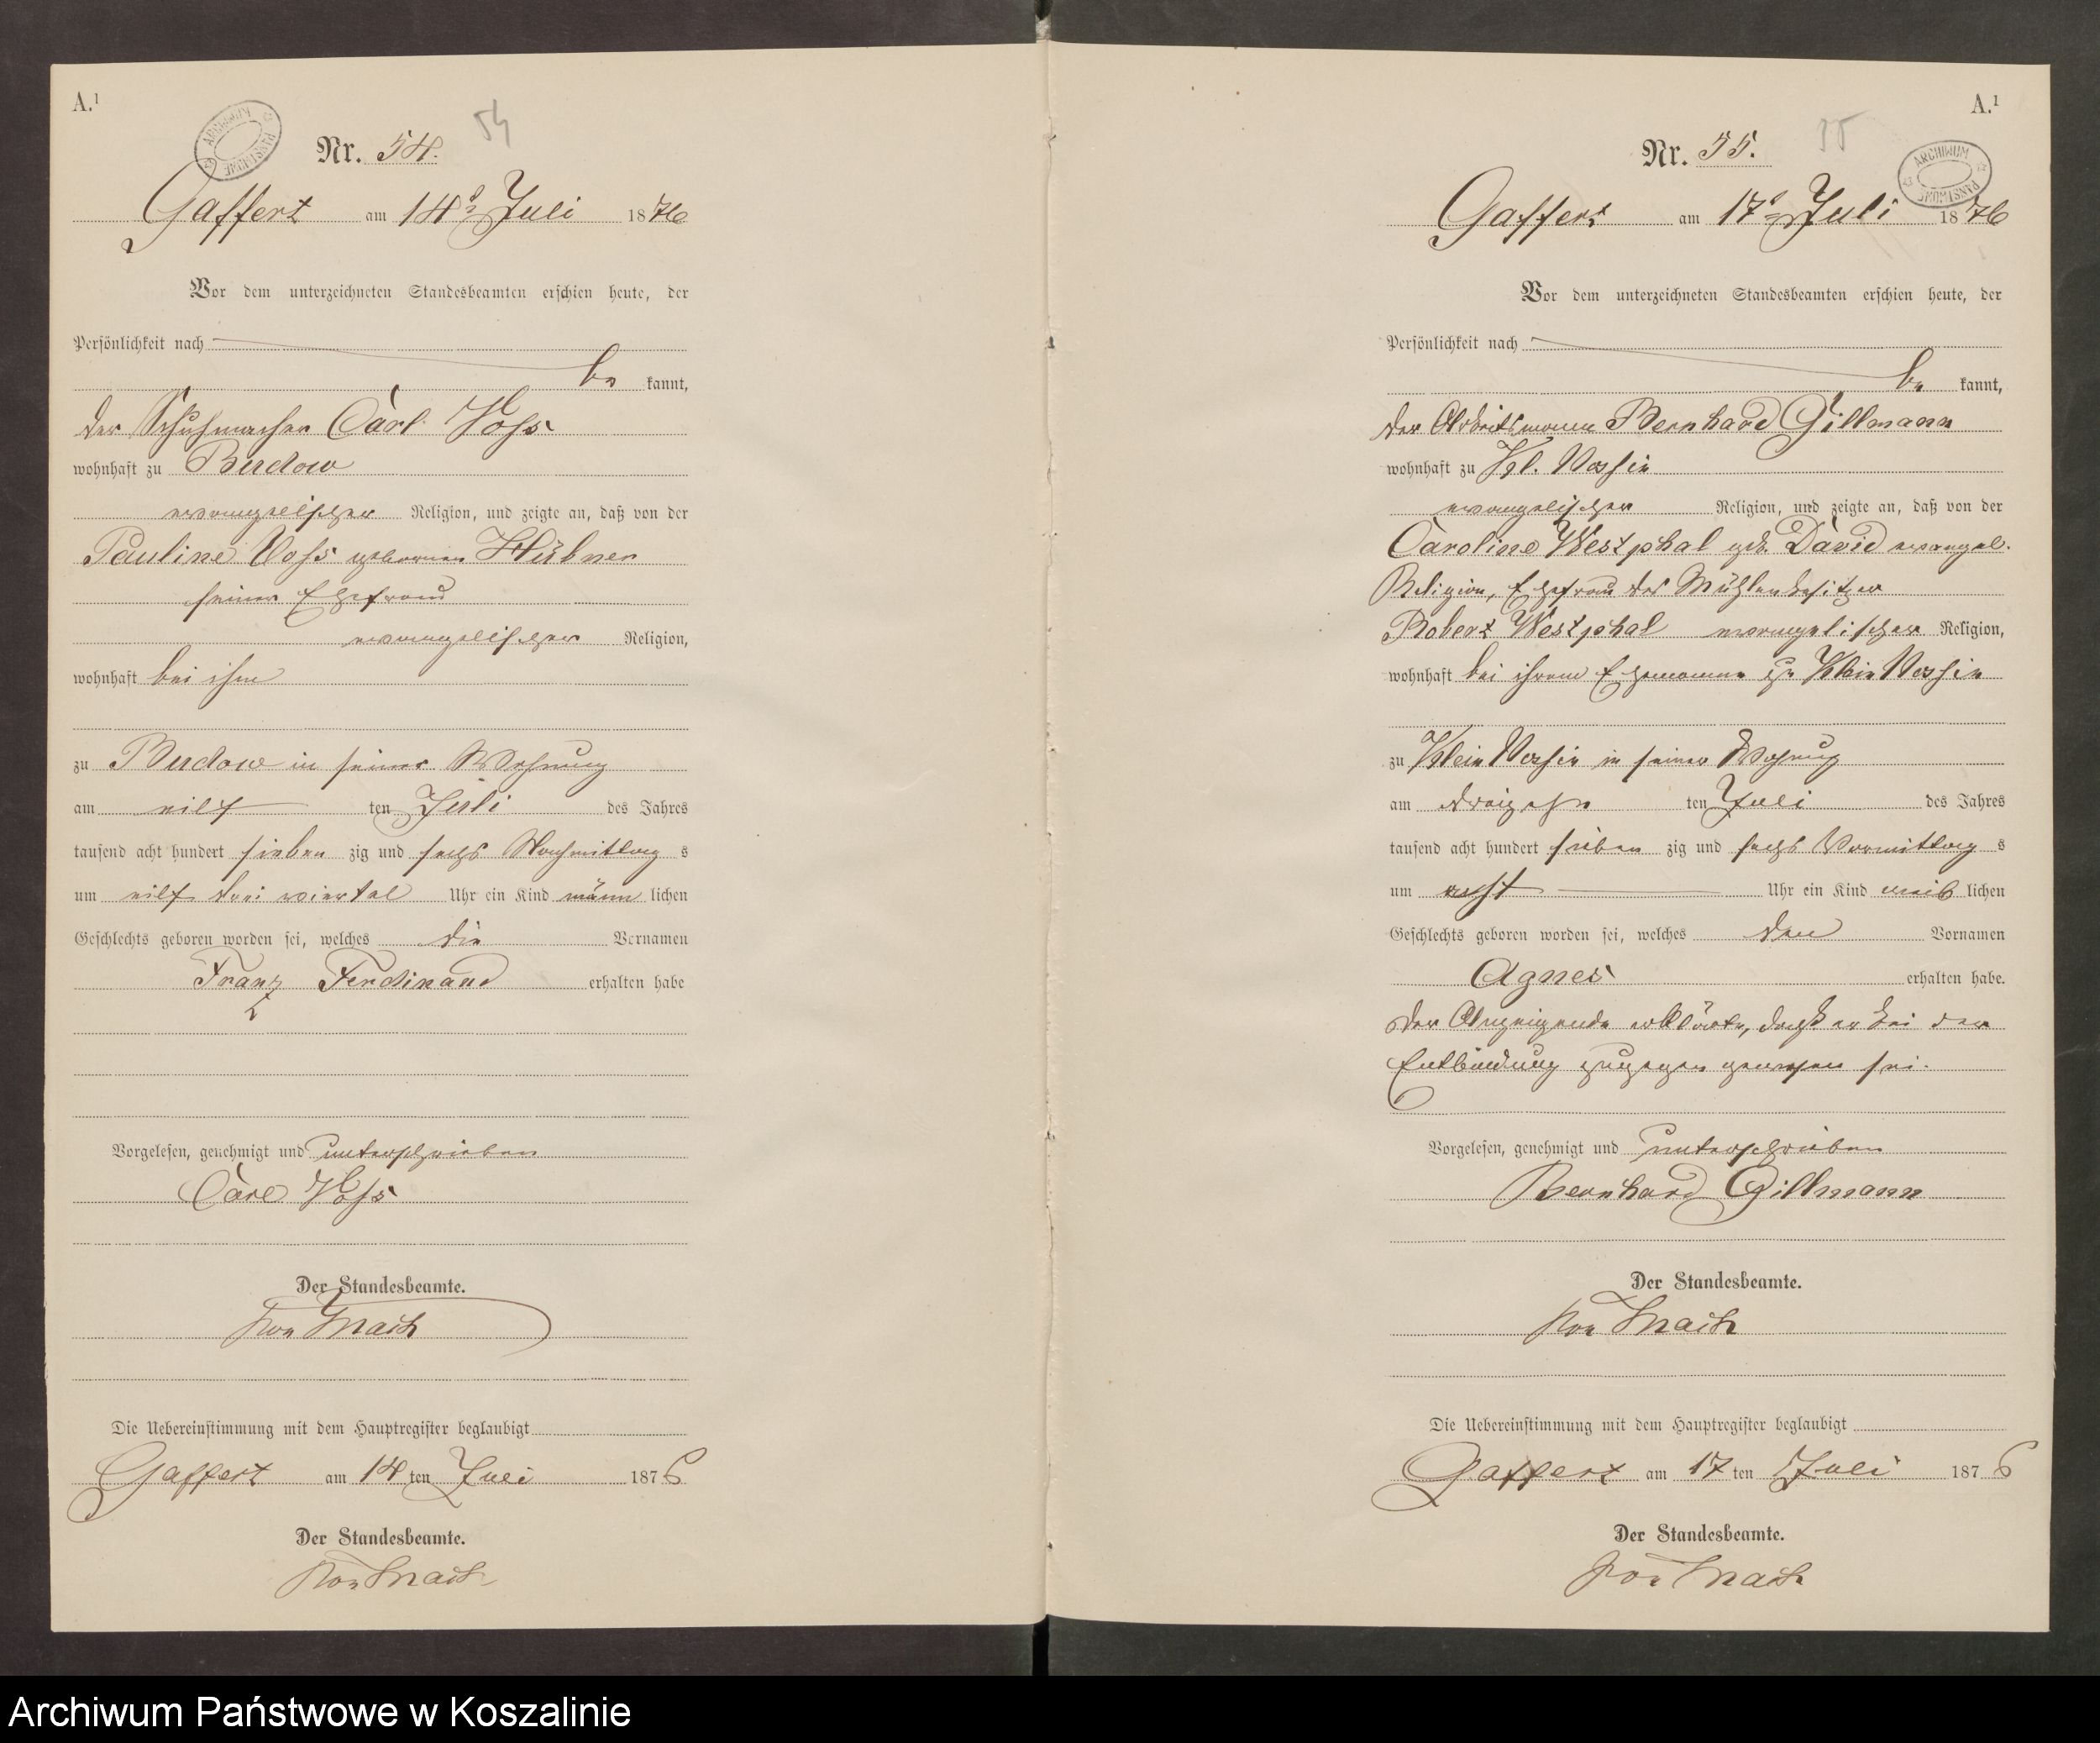 A.¹
ARCHIWUM PAŃSTWOWE
54
Nr. 54.
Gaffert am 14ᵗ Juli 1876
Vor dem unterzeichneten Standesbeamten erschien heute, der
Persönlichkeit nach
be kannt,
der Schuhmacher Carl Voss
wohnhaft zu Budow
evangelischer Religion, und zeigte an, daß von der
Pauline Voss geborene Hübner
seiner Ehefrau
evangelischer Religion,
wohnhaft bei ihm
zu Budow in seiner Wohnung
am eilf ten Juli des Jahres
tausend acht hundert sieben zig und sechs Nachmittag s
um eilf drei viertel Uhr ein Kind männ lichen
Geschlechts geboren worden sei, welches die Vornamen
Franz Ferdinand erhalten habe
Vorgelesen, genehmigt und unterschrieben
Carl Voss
Der Standesbeamte.
von Mach
Die Uebereinstimmung mit dem Hauptregister beglaubigt
Gaffert am 14 ten Juli 1876
Der Standesbeamte.
von Mach
A.¹
ARCHIWUM PAŃSTWOWE
55
Nr. 55.
Gaffert am 17ᵗ Juli 1876
Vor dem unterzeichneten Standesbeamten erschien heute, der
Persönlichkeit nach
be kannt,
der Arbeitsmann Bernhard Gillmann
wohnhaft zu Kl. Nossin
evangelischer Religion, und zeigte an, daß von der
Caroline Westphal geb. David evangel.
Religion, Ehefrau des Mühlenbesitzer
Robert Westphal evangelischer Religion,
wohnhaft bei ihrem Ehemanne zu Klein Nossin
zu Klein Nossin in seiner Wohnung
am dreizehn ten Juli des Jahres
tausend acht hundert sieben zig und sechs Vormittag s
um acht Uhr ein Kind weib lichen
Geschlechts geboren worden sei, welches den Vornamen
Agnes erhalten habe.
Der Anzeigende erklärte, daß er bei der
Entbindung zugegen gewesen sei.
Vorgelesen, genehmigt und unterschrieben
Bernhard Gillmann
Der Standesbeamte.
von Mach
Die Uebereinstimmung mit dem Hauptregister beglaubigt
Gaffert am 17 ten Juli 1876
Der Standesbeamte.
von Mach
Archiwum Państwowe w Koszalinie